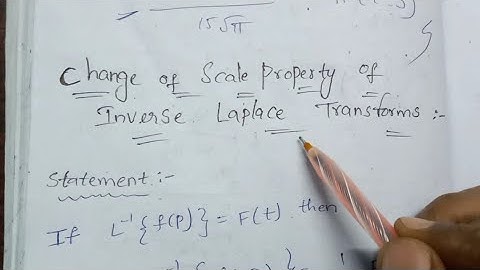 15√π
Change of Scale Property of
Inverse Laplace Transforms :-
Statement :-
If L⁻¹{f(p)} = F(t) then